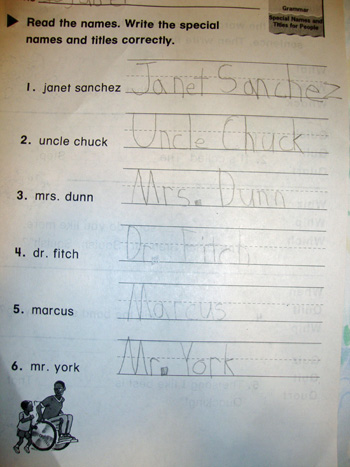 Grammar
Special Names and
Titles for People
Read the names. Write the special
names and titles correctly.
1. janet sanchez Janet Sanchez
2. uncle chuck Uncle Chuck
3. mrs. dunn Mrs. Dunn
4. dr. fitch Dr. Fitch
5. marcus Marcus
6. mr. york Mr. York